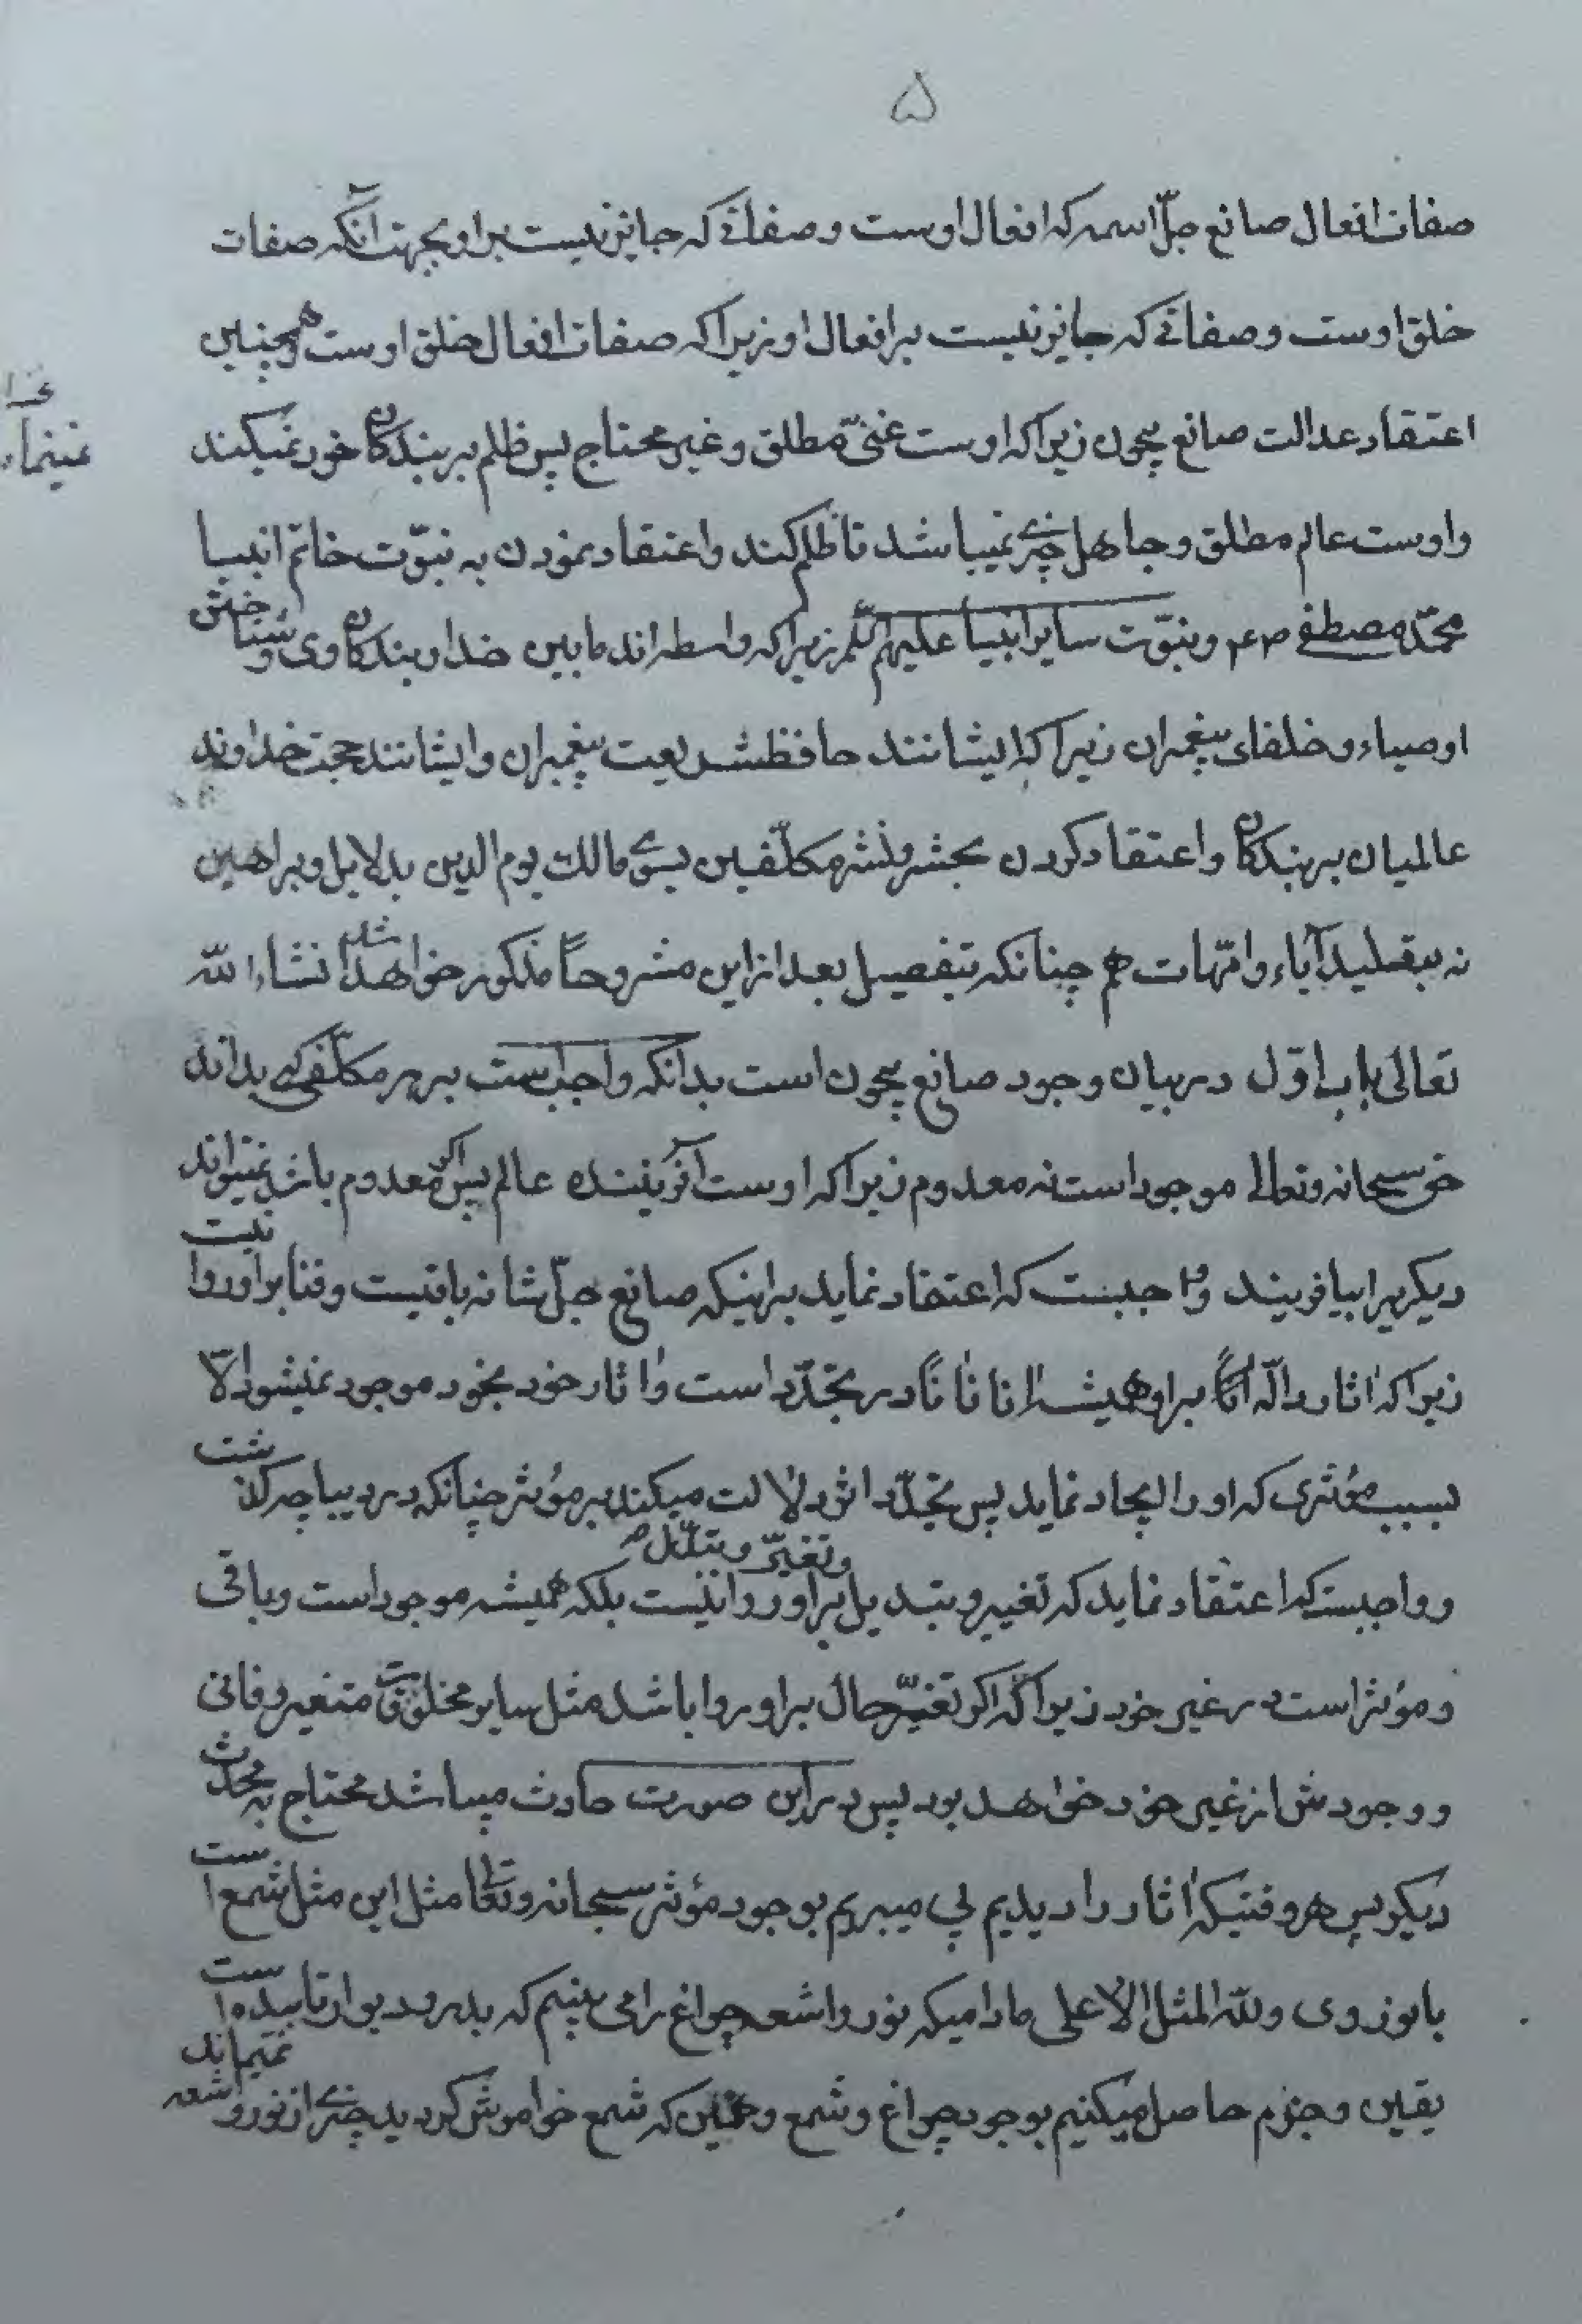 ۵
صفات افعال صانع جلّ اسمه که افعال اوست و صفاتی که جایز نیست بر او بجهت آنکه صفات
خلق اوست و صفاتی که جایز نیست بر افعال او زیرا که صفات افعال خلق اوست و همچنین
اعتقاد عدالت صانع بیچون زیرا که اوست غنیّ مطلق و غیر محتاج پس ظلم بر بندکان خود نمیکند
نمینماید
و اوست عالم مطلق و جاهل چیزی نمیباشد تا ظلم کند و اعتقاد نمودن به نبوّت خاتم انبیا
محمّد مصطفی ص‌ع‌م و بنبوّت سایر انبیا علیهم السّلم زیرا که واسطه اند مابین خدا و بندکان وی و شناختن
اوصیاء و خلفای پیغمبران زیرا که ایشانند حافظ شریعت پیغمبران و ایشانند حجت خداوند
عالمیان بر بندکان و اعتقاد کردن بحشر و نشر مکلّفین بسوی مالك یوم الدین بدلایل و براهین
نه بتقلید آباء و امّهات هم چنانکه بتفصیل بعد از این مشروحاً مذکور خواهد شد انشاء الله
تعالی باب اوّل در بیان وجود صانع بیچون است بدانکه واجب است بر هر مکلّفی که بداند
حق سبحانه و تعالی موجود است نه معدوم زیرا که اوست آفریننده عالم پس اکر معدوم باشد نمیتواند
دیکریرا بیافریند و واجبست که اعتقاد نماید بر اینکه صانع جلّ شانه باقیست و فنا بر او روا نیست
زیرا که اثار دالّه بر او همیشه انا فانا در تجدّد است و اثار خود بخود موجود نمیشود الّا
بسبب مؤثری که او را ایجاد نماید پس تجدّد اثر دلالت میکند بر مؤثر چنانکه در دیباچه کذشت
و تغیّر و تبدّل
و واجبست که اعتقاد نماید که تغییر و تبدیل بر او روا نیست بلکه همیشه موجود است و باقی
و مؤثر است در غیر خود زیرا که اکر تغیّر حال بر او روا باشد مثل سایر مخلوقات متغیر و فانی
و وجودش از غیر خود خواهد بود پس در این صورت حادث میباشد محتاج به محدث
دیکر پس هر وقتیکه اثار را دیدیم پی میبریم بوجود مؤثر سبحانه و تعالی مثل این مثل شمع است
با نور وی ولله المثل الاعلی مادامیکه نور و اشعه چراغ را می بینیم که بدر و دیوار تابیده است
یقین و جزم حاصل میکنیم بوجود چراغ و شمع و همین که شمع خواموش کردید چیزی از نور و اشعه نمیماند